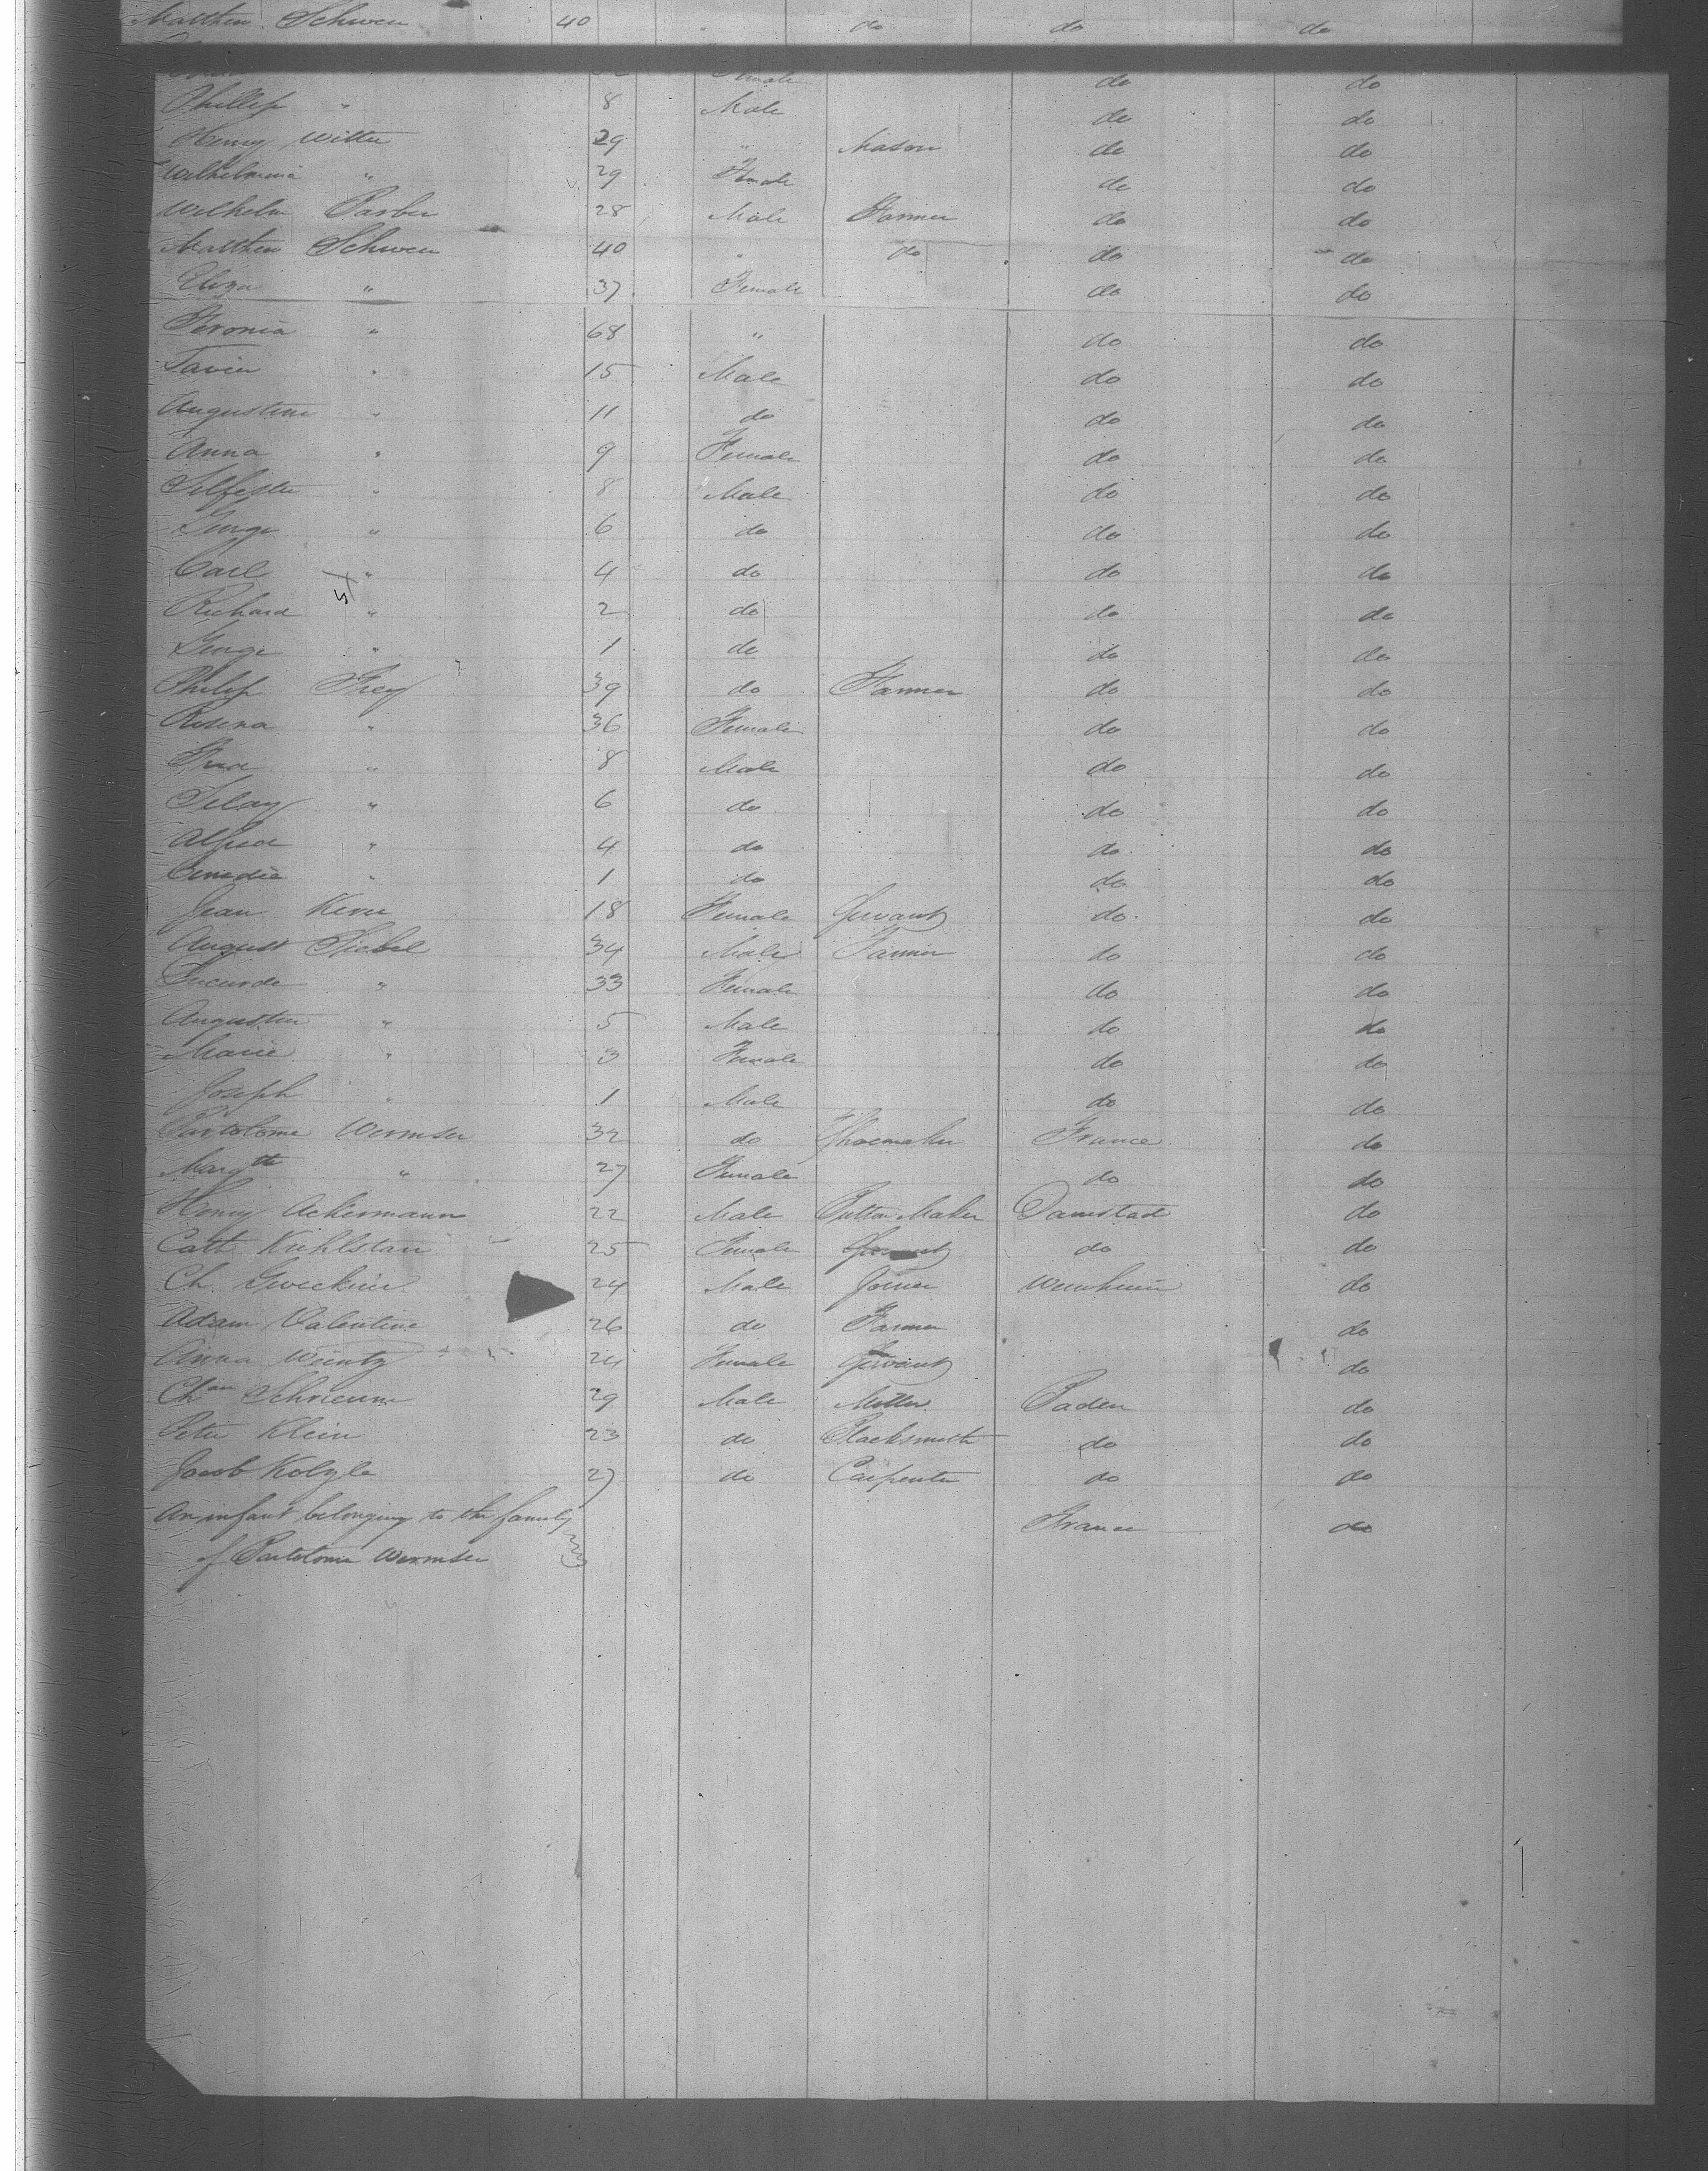 Matthew Schwen 40 " do do do
Female do do
Phillip " 8 Male do do
Henry Witte 29 " Mason do do
Wilhelmina " 29 Female do do
Wilhelm Barber 28 Male Farmer do do
Matthew Schwen 40 " do do do
Eliza " 37 Female do do
Feronia " 68 " do do
Xavier " 15 Male do do
Augustine " 11 do do do
Anna " 9 Female do do
Silfester " 8 Male do do
George " 6 do do do
Carl " 4 do do do
Richard " 2 do do do
George " 1 do do do
Philip Frey 39 do Farmer do do
Rosena " 36 Female do do
" 8 Male do do
" 6 do do do
Alfred " 4 do do do
" 1 do do do
Jean Kern 18 Female Servant do do
August Siebel 34 Male Farmer do do
" 33 Female do do
Augustin " 5 Male do do
Marie " 3 Female do do
Joseph " 1 Male do do
Bartolome Wermser 32 do Shoemaker France do
Margth " 27 Female do do
Henry Ackermann 22 Male Button Maker Damstad do
Cath Kuhlstan 25 Female do do
Ch. 24 Male Joiner do
Adam Valentine 26 do Farmer do
Anna Weintz 24 Female Servant do
Chan 29 Male Miller Baden do
Peter Klein 23 do Blacksmith do do
Jacob 27 do Carpenter do do
An infant belonging to the family France do
of Bartolome Wermser